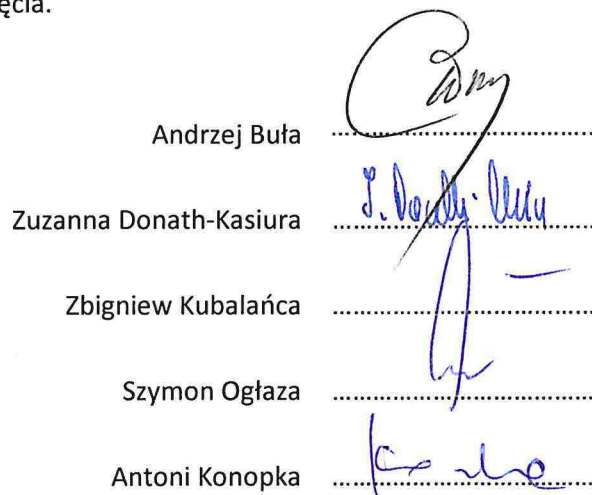 ęcia.
Andrzej Buła ........................................
Zuzanna Donath-Kasiura ........................................
Zbigniew Kubalańca ........................................
Szymon Ogłaza ........................................
Antoni Konopka ........................................